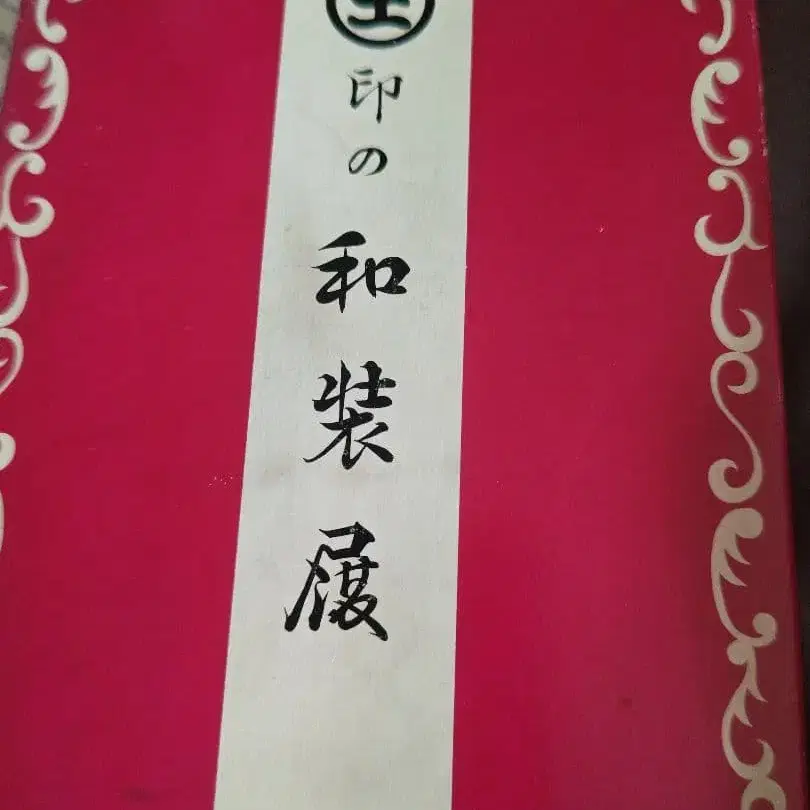 印の和装履